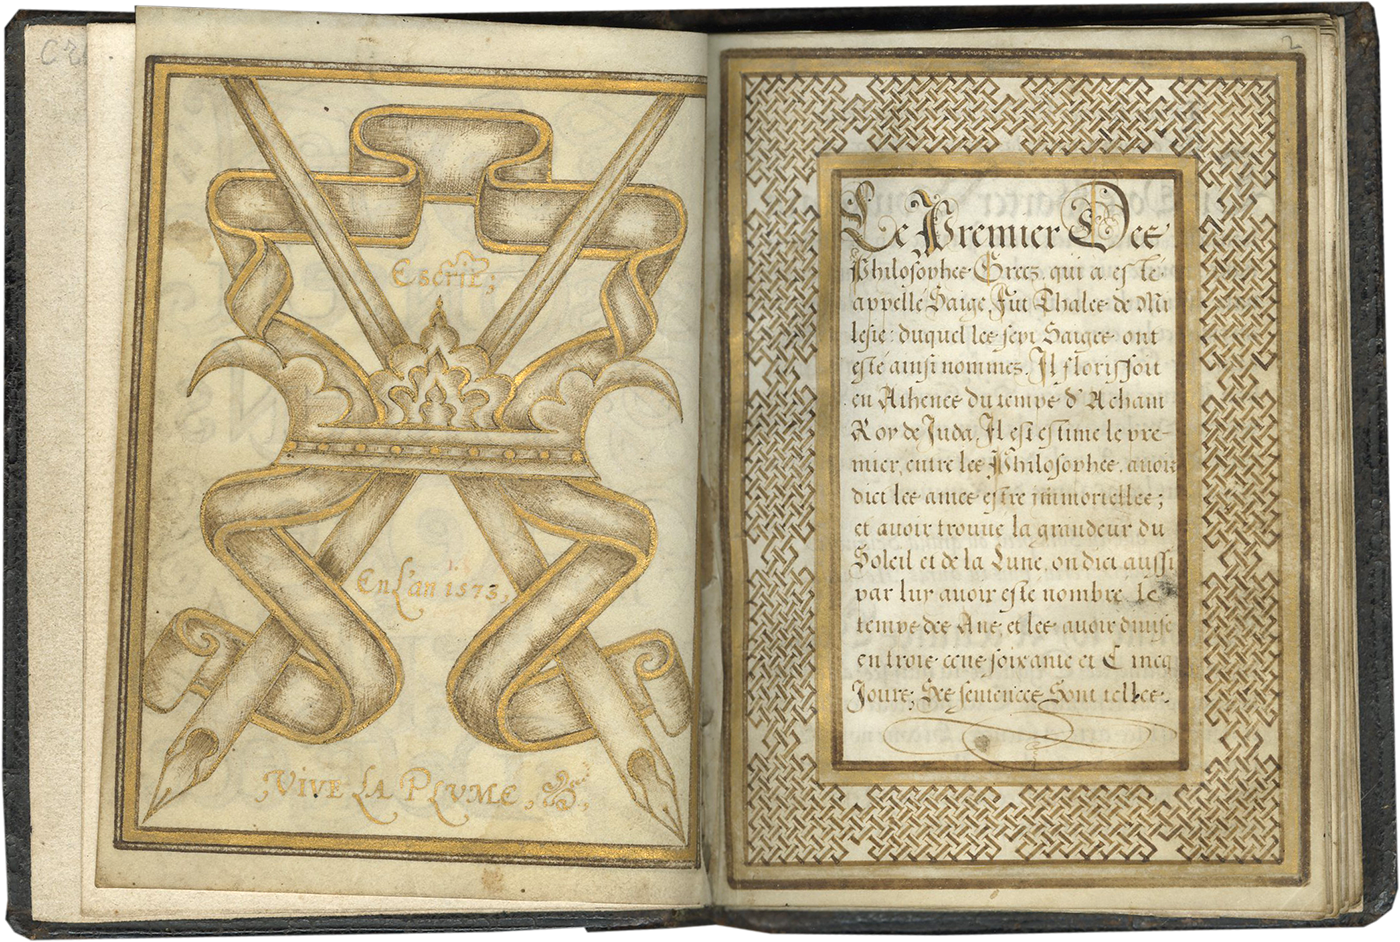 Escrit;
En L'an 1573,
VIVE LA PLVME,
2
Le Premier Des
Philosophes Grecz, qui a este
appellé Saige, fut Thales de Mi
lesie: duquel les sept Saiges ont
esté ainsi nommes. Il florissoit
en Athenes du temps d'Acham
Roy de Juda, Il est estimé le pre-
mier, entre les Philosophes, avoir
dict les ames estre immortelles;
et avoir trouvé la grandeur du
Soleil et de la Lune, on dict aussi
par luy avoir esté nombré le
temps des Ans, et les avoir divise
en trois cens soixante et Cincq
Jours, Ses sentences Sont telles.